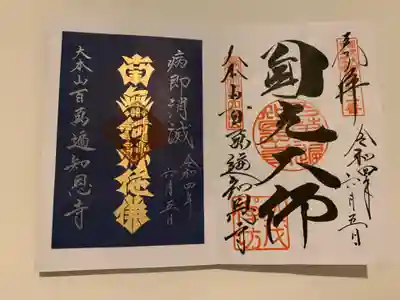 奉拝
令和四年六月五日
圓光大師
大本山百萬遍知恩寺
病即消滅
令和四年
六月五日
南無阿弥陀佛
大本山百萬遍知恩寺